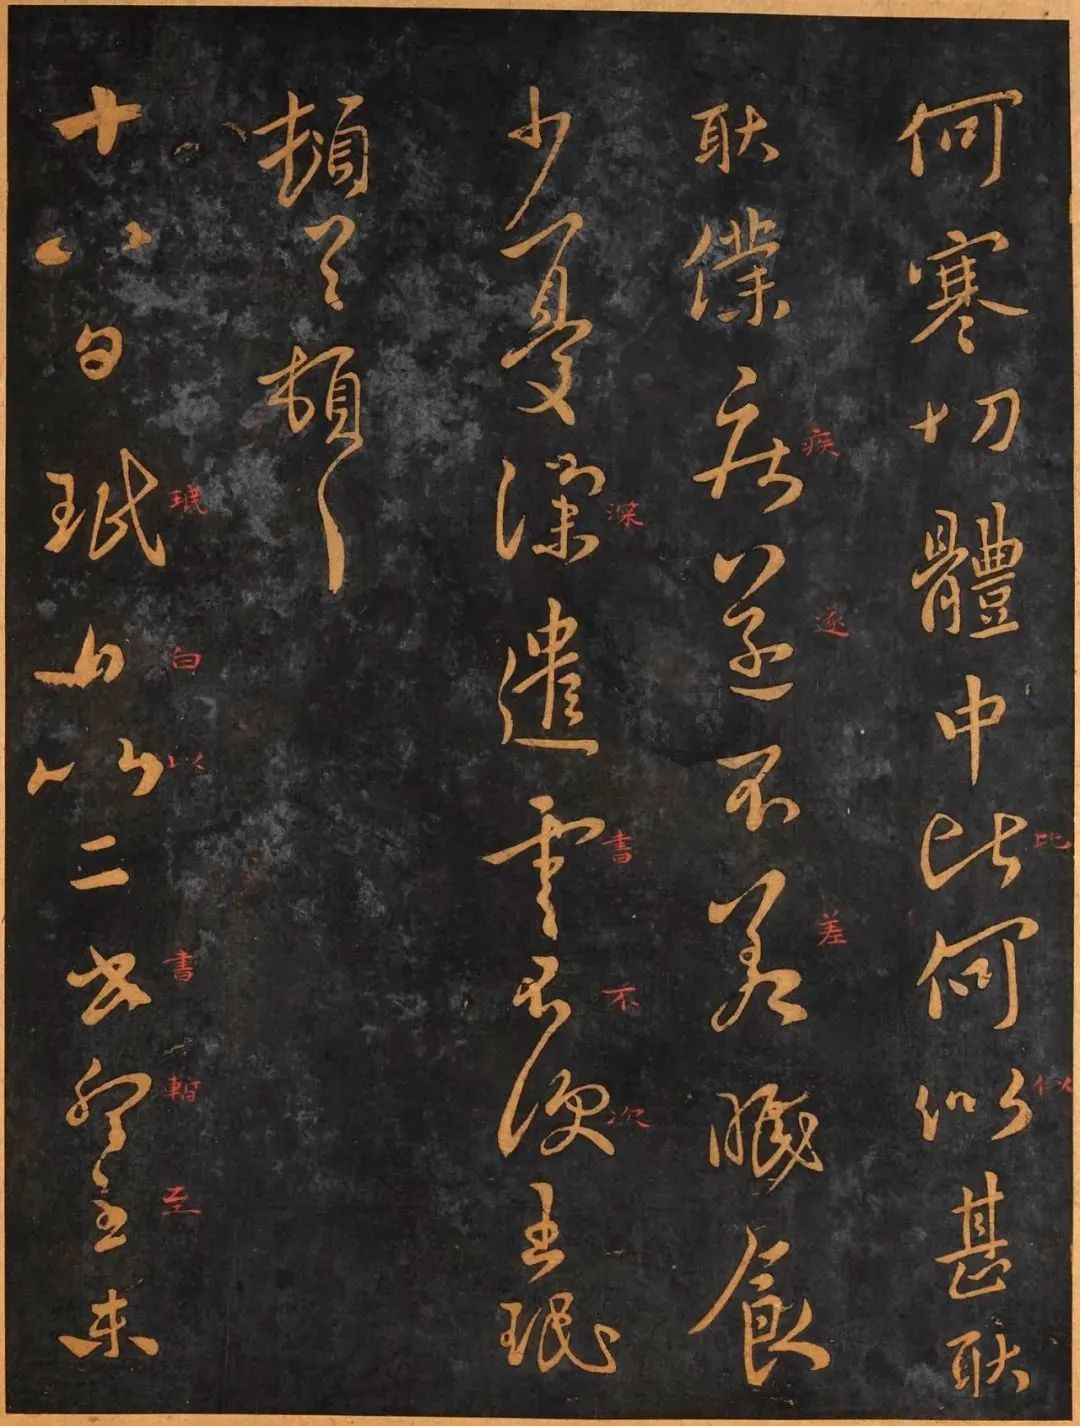 何寒切體中比何似甚耿
比 似
耿僕疾遂不差眠食
疾 遂 差
少憂深遣書不次王珉
深 書 不 次
頓首頓首
十八日珉白以二書暫至未
珉 白 以 書 暫 至